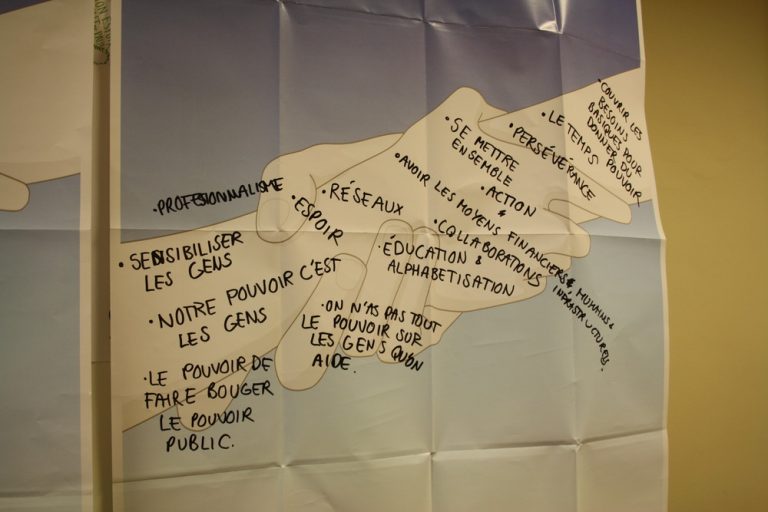 • PROFESSIONNALISME
• SENSIBILISER
LES GENS
• NOTRE POUVOIR C'EST
LES GENS
• LE POUVOIR DE
FAIRE BOUGER
LE POUVOIR
PUBLIC.
• ESPOIR
• RÉSEAUX
• ON N'AS PAS TOUT
LE POUVOIR SUR
LES GENS QU'ON
AIDE.
• ÉDUCATION &
ALPHABETISATION
• COLLABORATIONS
• AVOIR LES MOYENS FINANCIERS, HUMAINS &
INFRASTRUCTURELS.
• ACTION
• SE METTRE
ENSEMBLE
• PERSÉVÉRANCE
• LE TEMPS
• COUVRIR LES
BESOINS
BASIQUES POUR
DONNER DU
POUVOIR